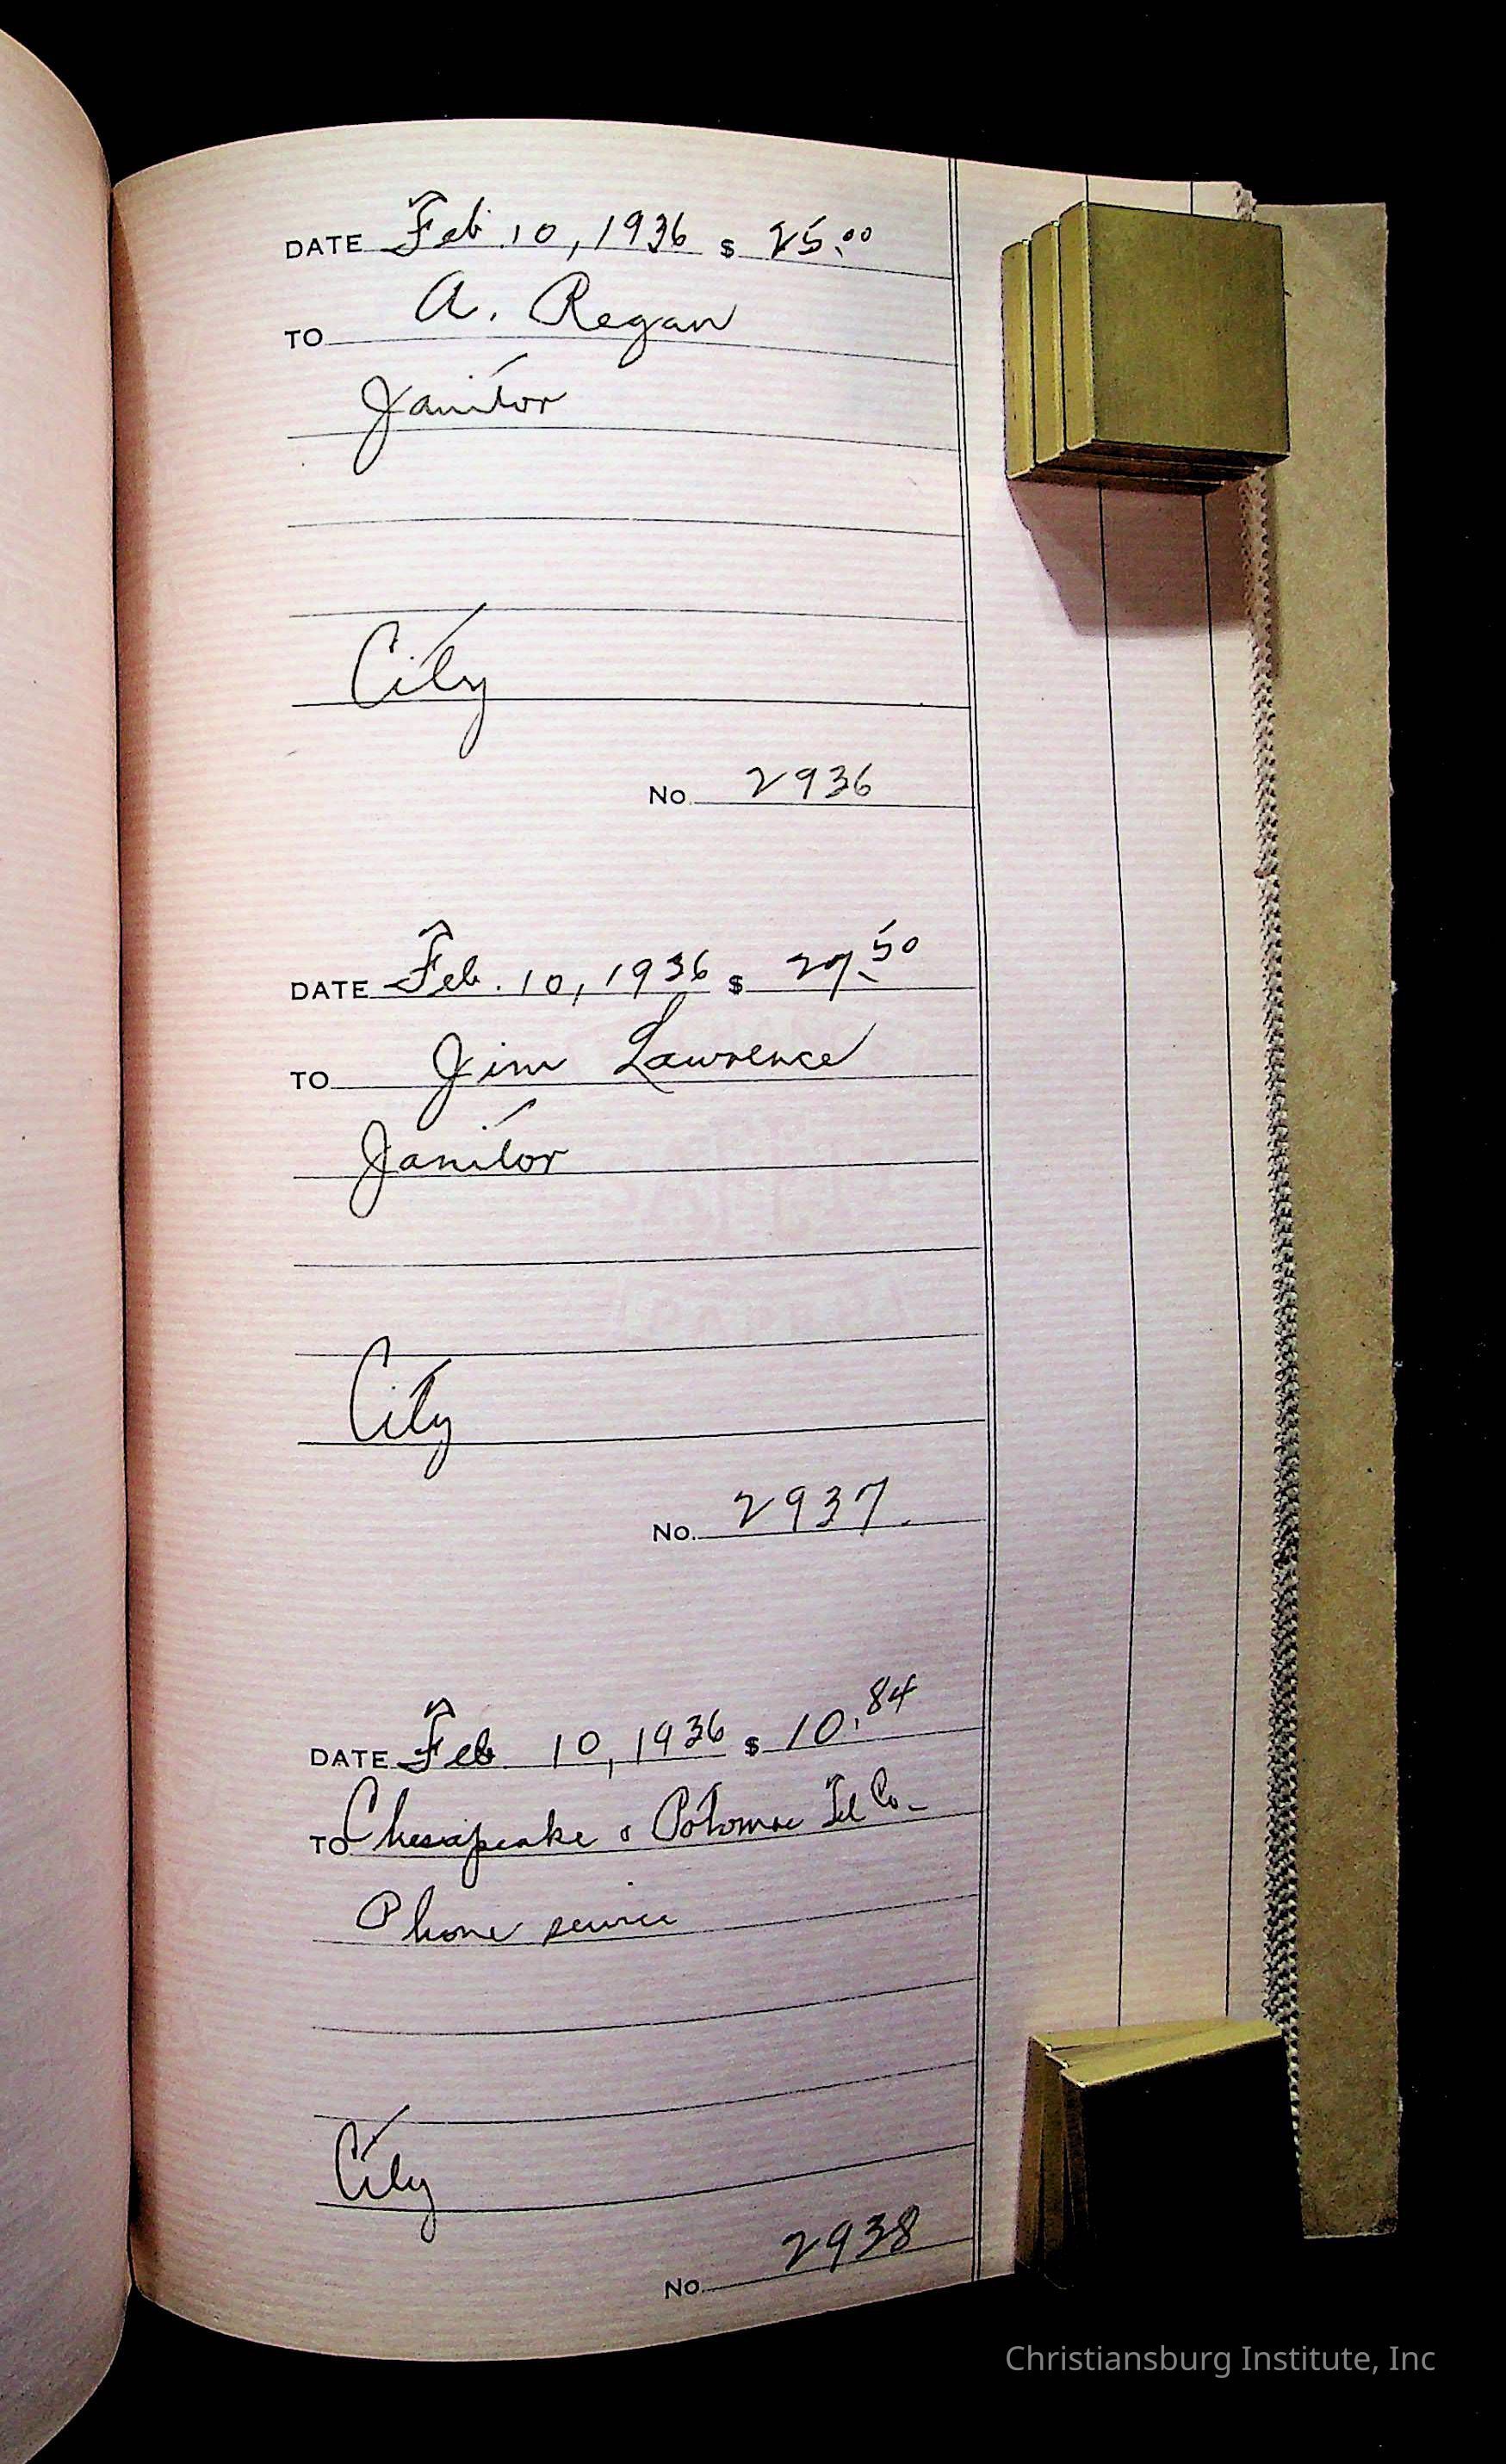 DATE Feb. 10, 1936 $ 25.00
TO A. Regan
Janitor
City
No. 2936
DATE Feb. 10, 1936 $ 27.50
TO Jim Lawrence
Janitor
City
No. 2937.
DATE Feb. 10, 1936 $ 10.84
TO Chesapeake & Potomac Tel Co.
Phone service
City
No. 2938
Christiansburg Institute, Inc